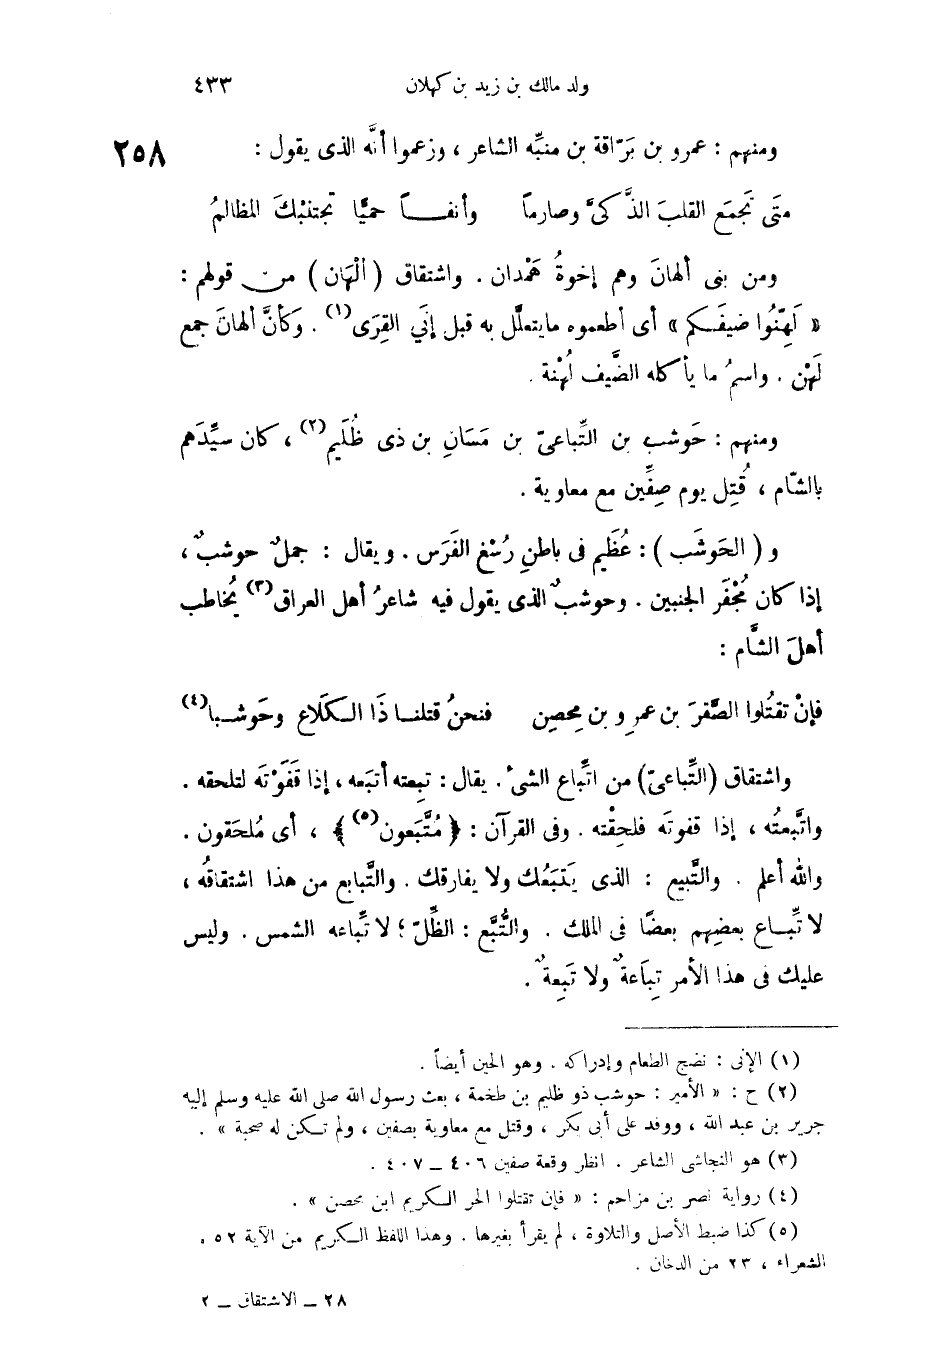 ولد مالك بن زيد بن كهلان ٤٣٣
ومنهم : عمرو بن بَرّاقة بن منبِّه الشاعر ، وزعموا أنَّه الذى يقول : ٢٥٨
متَى تَجمَع القلبَ الذَّكىَّ وصارماً وأنفــاً حميًّا تجتنبْكَ المظالمُ
ومن بنى ألهانَ وهم إخوةُ هَمْدان . واشتقاق ( ألْهَان ) من قولهم :
« لَهِّنُوا ضيفَكم » أى أطعموه مايتعلَّل به قبل إنَي القِرَى(١) . وكأنَّ ألهانَ جمع
لَهْن . واسمُ ما يأكله الضَّيف لُهْنة .
ومنهم : حَوشب بن التِّباعىّ بن مَسَانِ بن ذى ظُلَيم(٢) ، كان سيِّدَهم
بالشّام ، قُتِل يوم صِفِّين مع معاوية .
و ( الحَوشَب ) : عُظَيم فى باطنِ رُسْغ الفَرَس . ويقال : جملٌ حوشبٌ ،
إذا كان مُجْفَر الجنبين . وحوشبٌ الذى يقول فيه شاعرُ أهل العراق(٣) يُخاطب
أهلَ الشَّام :
فإنْ تقتُلوا الصَّقرَ بن عمرِو بن مِحصِن فنحنُ قتلنـا ذَا الـكلَاع وحَوشـبا(٤)
واشتقاق (التِّباعىّ) من اتِّباع الشئ . يقال : تبِعته أتبَعه ، إذا قَفَوْتَه لتلحقه .
واتَّبعتُه ، إذا قفوتَه فلحِقْته . وفى القرآن : ﴿ مُتَّبَعون(٥) ﴾ ، أى مُلحَقون .
والله أعلم . والتَّبيع : الذى يَتبَعُك ولا يفارقك . والتَّبابع من هذا اشتقاقُه ،
لاتِّبـاع بعضِهم بعضًا فى الملك . والتُّبَّع : الظِّلّ ؛ لاتِّباعه الشمس . وليس
عليك فى هذا الأمر تِبَاعةٌ ولا تَبِعةٌ .
(١) الإنى : نضج الطعام وإدراكه . وهو الحين أيضاً .
(٢) ح : « الأمير : حوشب ذو ظليم بن طخمة ، بعث رسول الله صلى الله عليه وسلم إليه
جرير بن عبد الله ، ووفد على أبى بكر ، وقتل مع معاوية بصفين ، ولم تـكن له صحبة » .
(٣) هو النجاشى الشاعر . انظر وقعة صفين ٤٠٦ – ٤٠٧ .
(٤) رواية نصر بن مزاحم : « فإن تقتلوا الحر الـكريم ابن محصن » .
(٥) كذا ضبط الأصل والتلاوة ، لم يقرأ بغيرها . وهذا اللفظ الـكريم من الآية ٥٢ ،
الشعراء ، ٢٣ من الدخان .
٢٨ – الاشتقاق – ٢